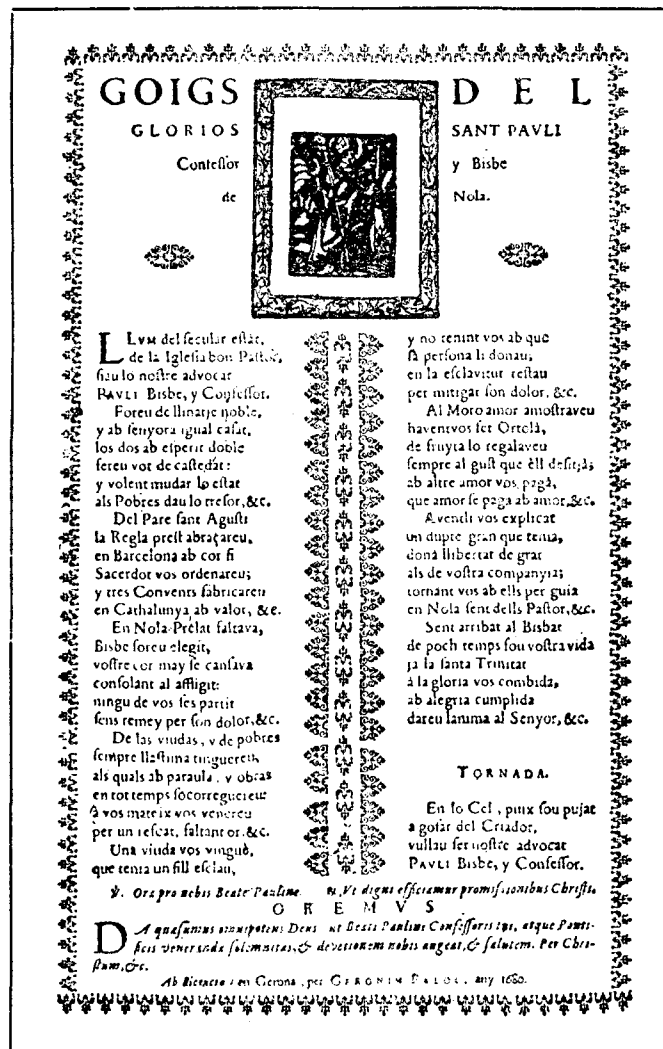 GOIGS DEL
GLORIOS SANT PAVLI
Confessor y Bisbe
de Nola.
LLVM del secular estat,
de la Iglesia bon Pastor,
siau lo nostre advocat
PAVLI Bisbe, y Confessor.
Foreu de llinatje noble,
y ab senyora igual casat,
los dos ab esperit doble
fereu vot de castedat:
y volent mudar lo estat
als Pobres dau lo tresor,&c.
Del Pare sant Agusti
la Regla prest abraçareu,
en Barcelona ab cor fi
Sacerdot vos ordenareu;
y tres Convents fabricareu
en Cathalunya ab valor, &c.
En Nola Prelat faltava,
Bisbe foreu elegit,
vostre cor may se cansava
consolant al affligit:
ningu de vos ses partit
sens remey per son dolor,&c.
De las viudas, y de pobres
sempre llastima tinguereu,
als quals ab paraula, y obras
en tot temps socorreguereu
à vos mateix vos venereu
per un rescat, faltant or.&c.
Una viuda vos vingué,
que tenia un fill esclau,
y no tenint vos ab que
sa persona li donau;
en la esclavitut restau
per mitigar son dolor, &c.
Al Moro amor amostraveu
haventvos fet Ortolà,
de fruyta lo regalaveu
sempre al gust que èll desitjà;
ab altre amor vos pagà,
que amor se paga ab amor,&c.
Avendli vos explicat
un dupte gran que tenia,
donà llibertat de grat
als de vostra companyia;
tornant vos ab ells per guia
en Nola sent dells Pastor,&c.
Sent arribat al Bisbat
de poch temps fou vostra vida
ja la santa Trinitat
à la gloria vos combida,
ab alegria cumplida
dareu lanima al Senyor, &c.
TORNADA.
En lo Cel, puix sou pujat
a gosar del Criador,
vullau ser nostre advocat
PAVLI Bisbe, y Confessor.
℣. Ora pro nobis Beate Pauline. ℟. Vt digni efficiamur promissionibus Christi.
OREMVS
DA quæsumus omnipotens Deus ut Beati Paulini Confessoris tui, atque Ponti-
ficis veneranda solemnitas, & devotionem nobis augeat, & salutem. Per Chri-
stum, &c.
en Gerona, per GERONIM PALOL, any 1680.